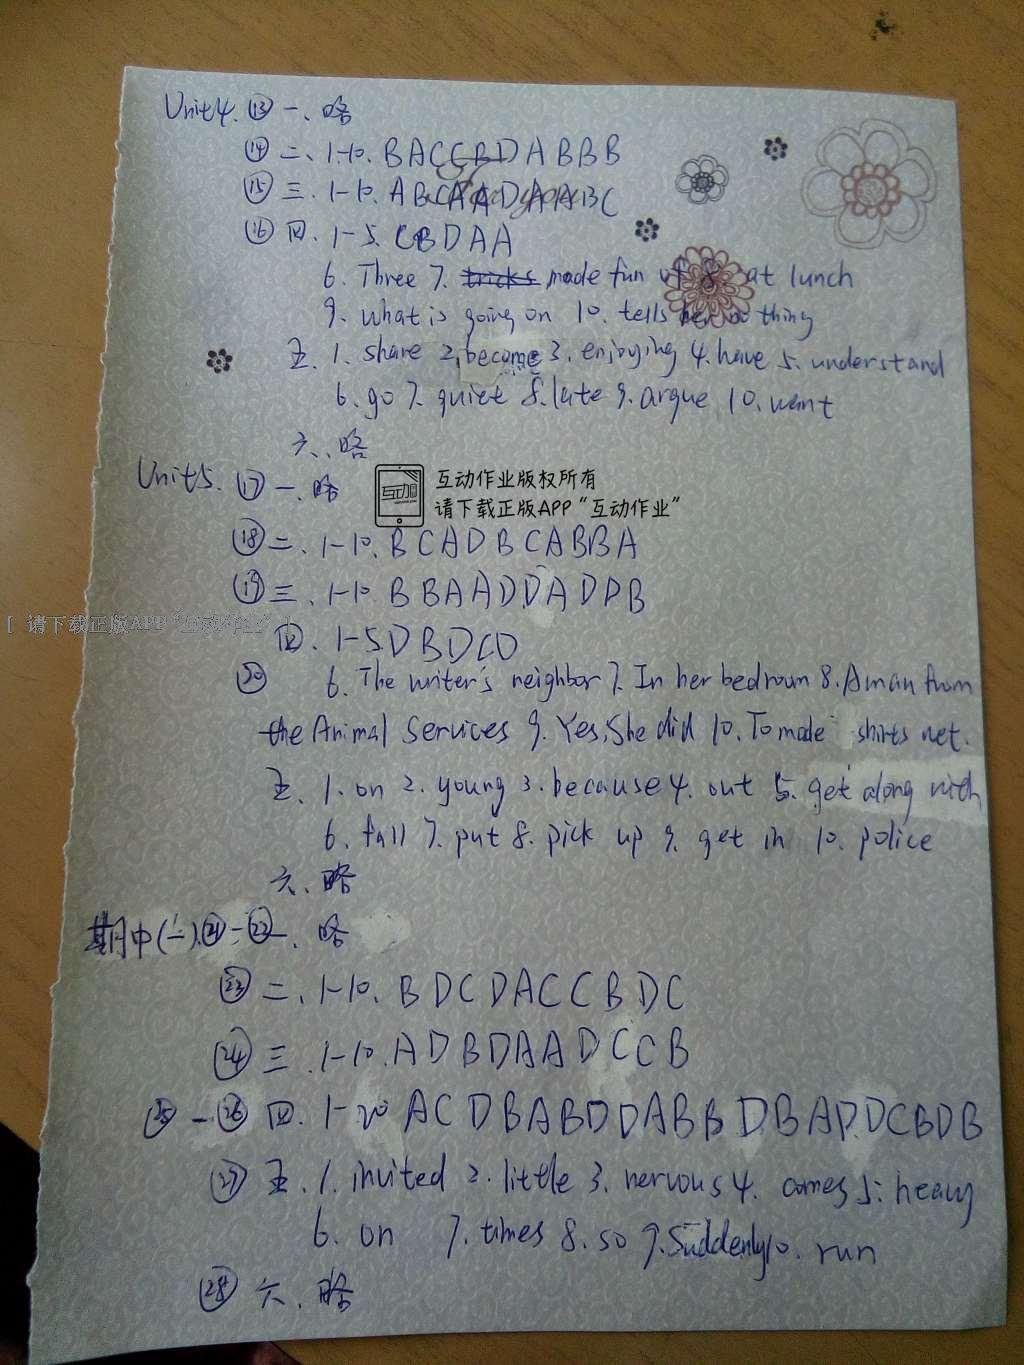 Unit4. ⑬ 一、略
⑭ 二、1-10. BACCBDABBB
⑮ 三、1-10. ABCAADAABC
⑯ 四. 1-5. CBDAA
6. Three 7. made fun of 8. at lunch
9. what is going on 10. tells her no thing
五. 1. share 2. become 3. enjoying 4. have 5. understand
6. go 7. quiet 8. late 9. argue 10. want
六、略
Unit5. ⑰ 一、略
互动作业版权所有
请下载正版APP“互动作业”
⑱ 二、1-10. BCADBCABBA
⑲ 三、1-10. BBAADDADDB
[ 请下载正版APP
四. 1-5 DBDCD
⑳ 6. The writer's neighbor 7. In her bedroom 8. A man from
the Animal Services 9. Yes, She did 10. To made shirts net.
五. 1. on 2. young 3. because 4. out 5. get along with
6. fall 7. put 8. pick up 9. get in 10. police
六、略
期中(一). ㉑-㉒ 一、略
㉓ 二、1-10. BDCDACCBDC
㉔ 三、1-10. ADBDAADCCB
㉕-㉖ 四. 1-20 ACDBABDDABBDBADDCBDB
㉗ 五. 1. invited 2. little 3. nervous 4. comes 5. heavy
6. on 7. times 8. so 9. Suddenly 10. run
㉘ 六、略